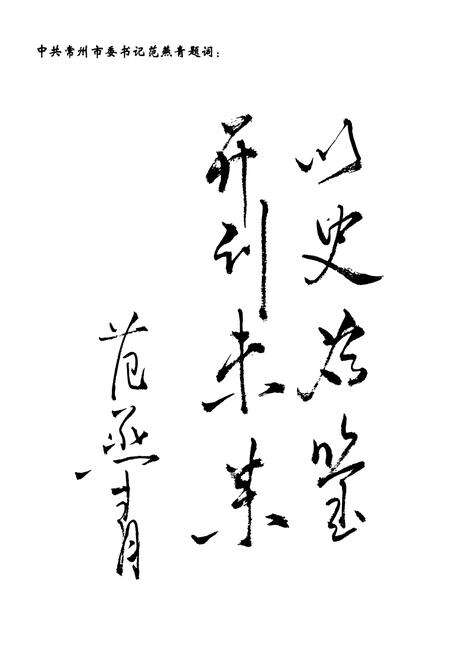 中共常州市委书记范燕青题词：
以史为鉴
开创未来
范燕青